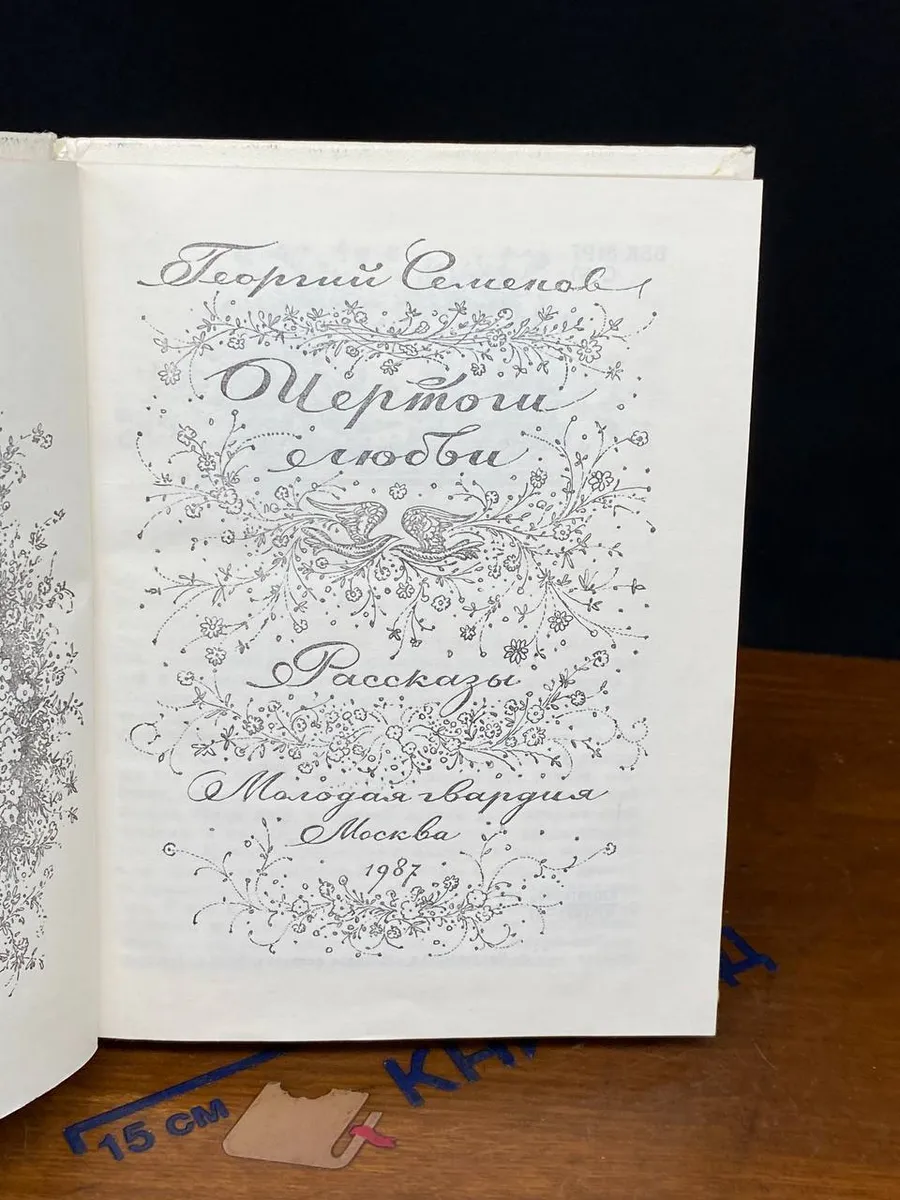 Георгий Семенов
Чертоги
любви
Рассказы
Молодая гвардия
Москва
1987
15 см